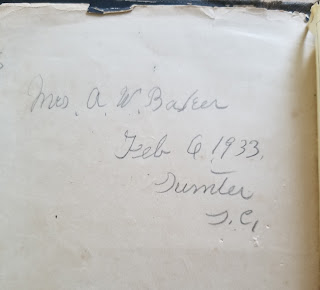 Mrs. A. W. Baker
Feb 6, 1933.
Sumter
S. C.,